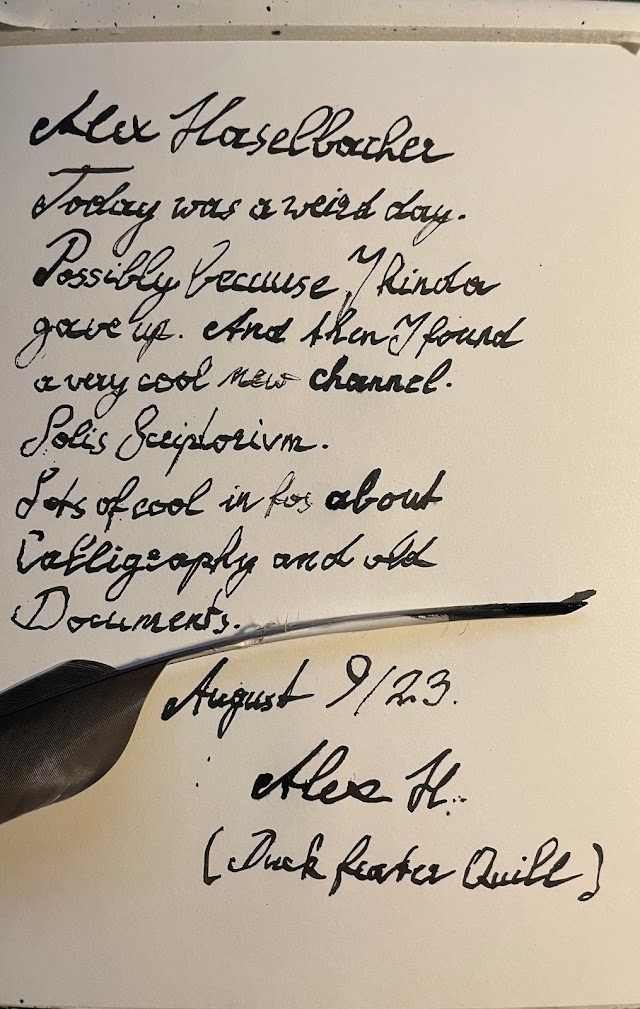 Alex Haselbacher
Today was a weird day.
Possibly because I kinda
gave up. And then I found
a very cool new channel.
Solis Scriptorivm.
Lots of cool in fos about
Calligraphy and old
Documents.
August 9/23.
Alex H.
(Duck feater Quill)